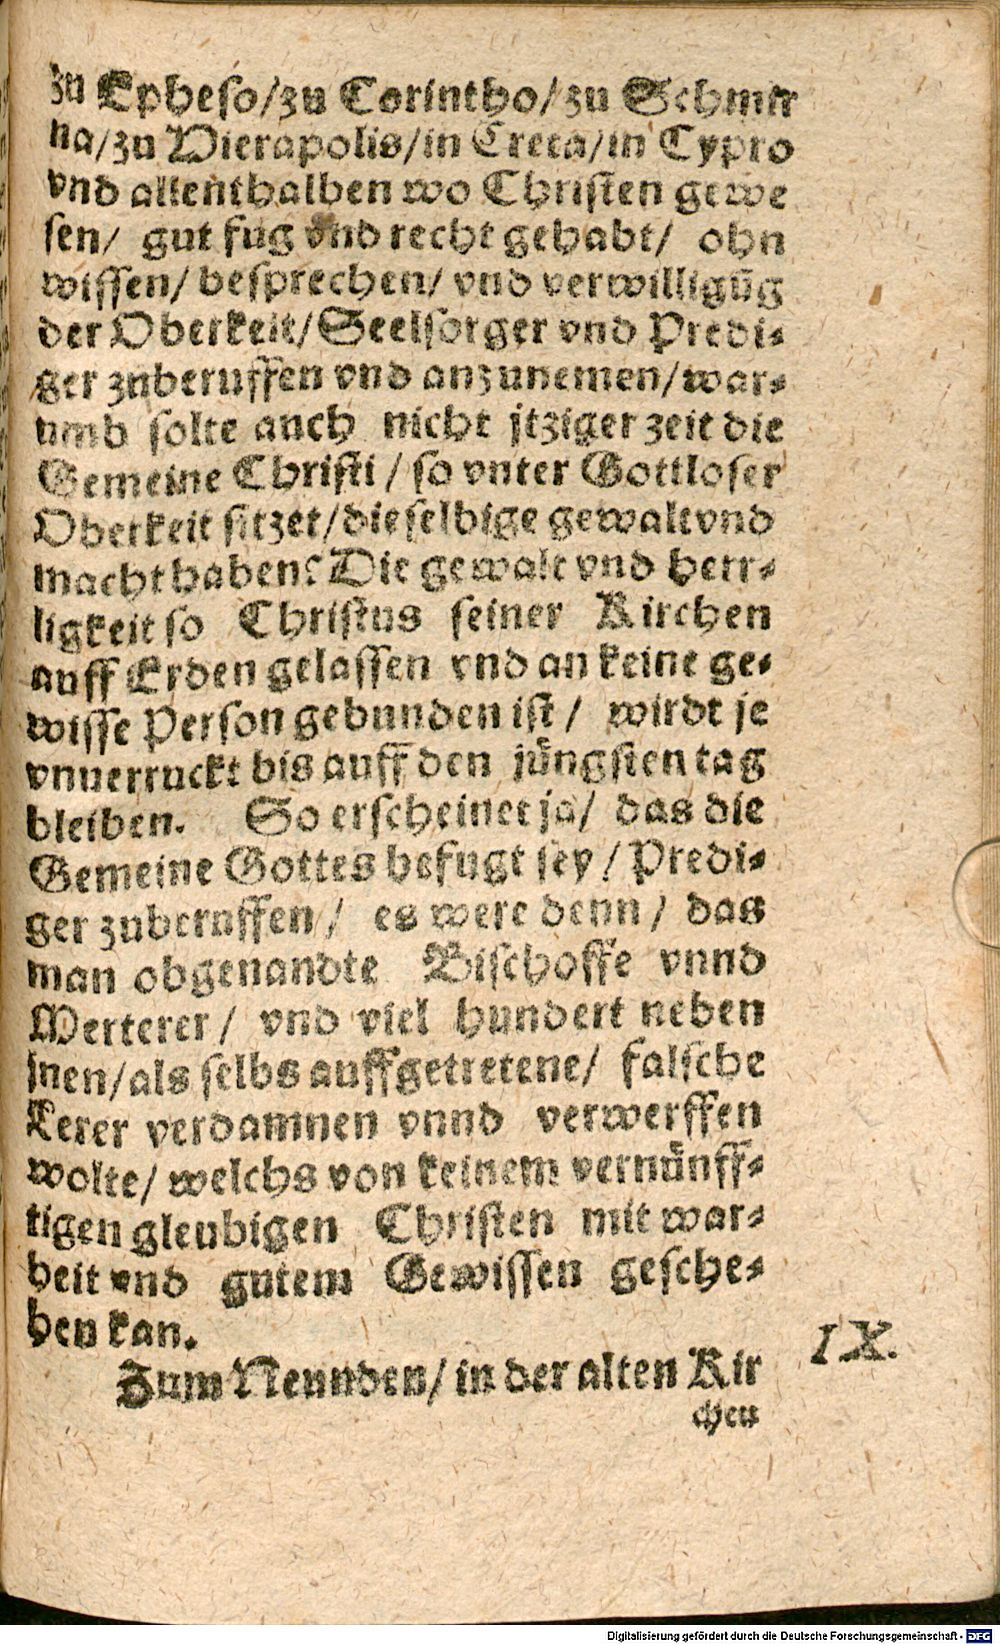 zu Epheso/zu Corintho/zu Schmir
na/zu Hierapolis/in Creta/in Cypro
vnd allenthalben wo Christen gewe
sen/ gut fug vnd recht gehabt/ ohn
wissen/ besprechen/ vnd verwilligūg
der Oberkeit/Seelsorger vnd Predi-
ger zuberuffen vnd anzunemen/war-
umb solte auch nicht jtziger zeit die
Gemeine Christi / so vnter Gottloser
Oberkeit sitzet/dieselbige gewalt vnd
macht haben? Die gewalt vnd herr-
ligkeit so Christus seiner Kirchen
auff Erden gelassen vnd an keine ge-
wisse Person gebunden ist / wirdt je
vnuerruckt bis auff den jüngsten tag
bleiben. So erscheinet ja/ das die
Gemeine Gottes befugt sey / Predi-
ger zuberuffen / es were denn / das
man obgenandte Bischoffe vnnd
Merterer / vnd viel hundert neben
jnen/als selbs auffgetretene/ falsche
Lerer verdamnen vnnd verwerffen
wolte/ welchs von keinem vernünff-
tigen gleubigen Christen mit war-
heit vnd gutem Gewissen gesche-
hen kan.
Zum Neunden/ in der alten Kir
IX.
chen
Digitalisierung gefördert durch die Deutsche Forschungsgemeinschaft - DFG